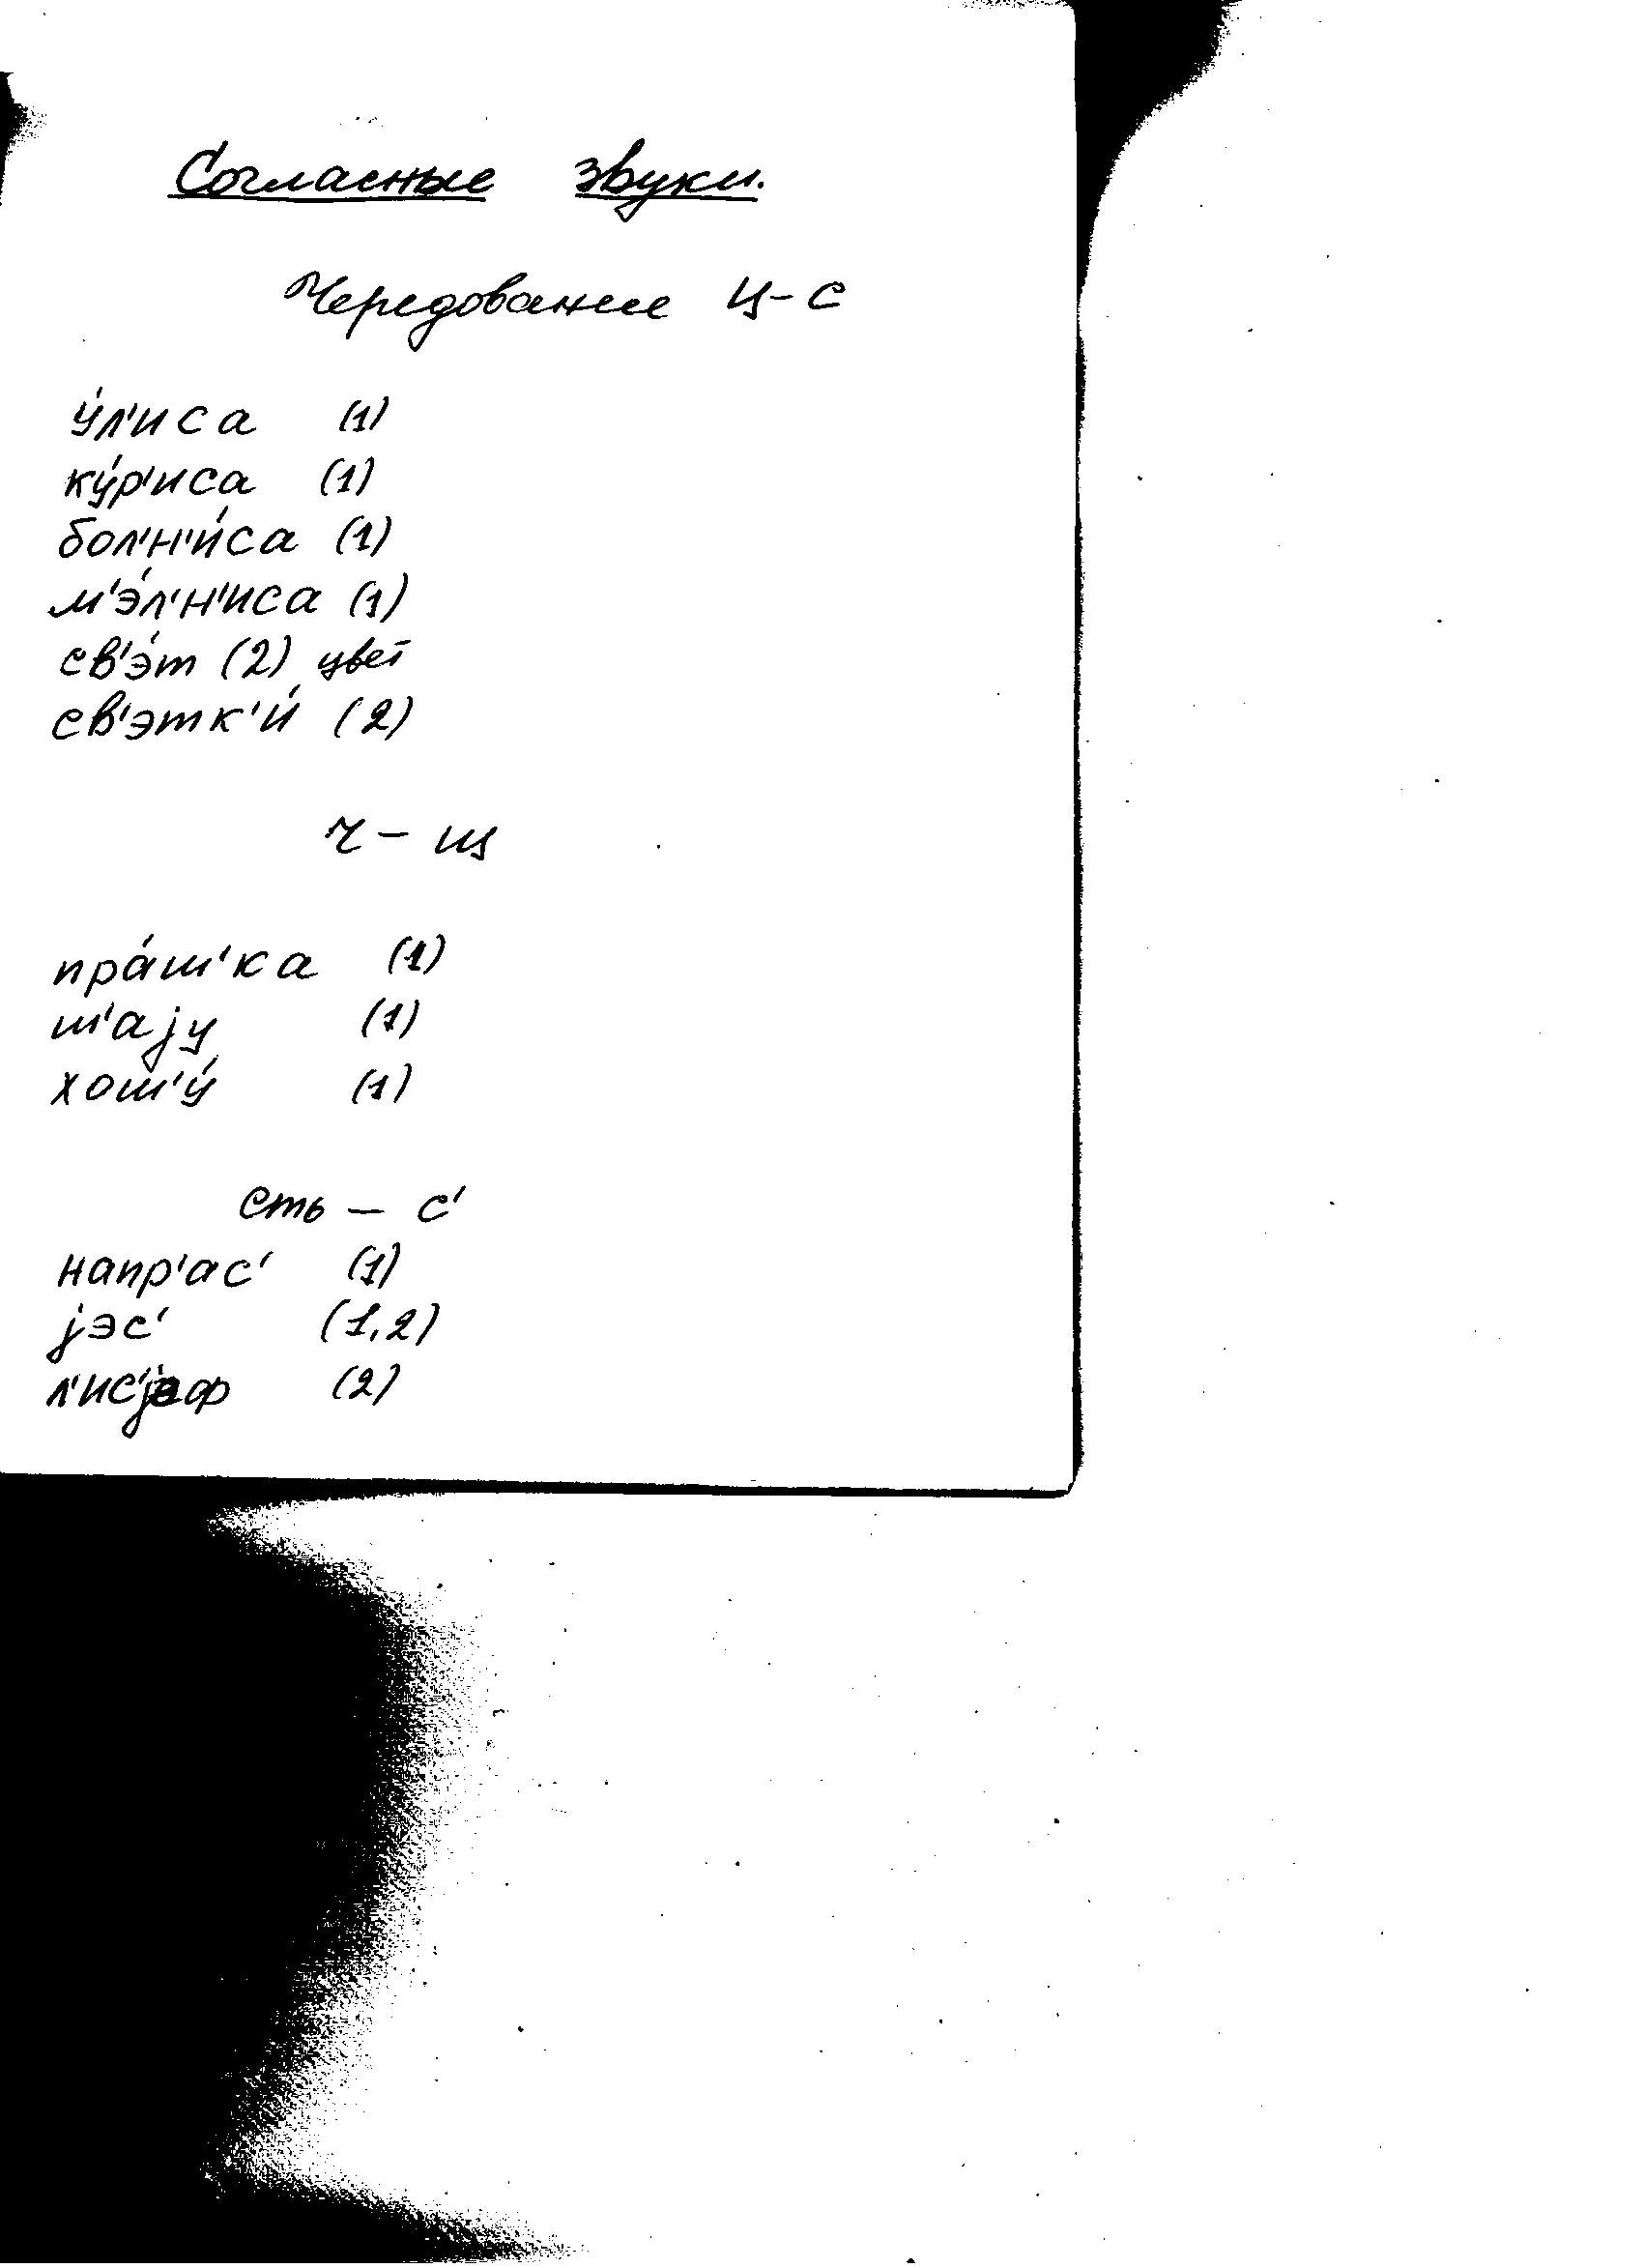 Согласные звуки.
Чередование ц-с
у́л'иса (1)
ку́р'иса (1)
бол'н'и́са (1)
м'э́л'н'иса (1)
св'э́т (2) цвет
св'этк'и́ (2)
ч - щ
пра́ш'ка (1)
ш'аjу (1)
хош'у́ (1)
сть - с'
напр'ас' (1)
jэс' (1,2)
(2)